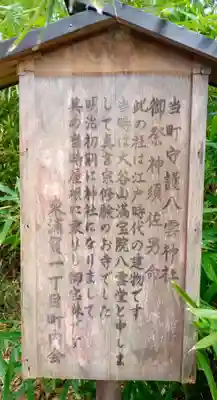 当町守護八雲神社
御祭神須佐男命
此の社は江戸時代の建物です
当時は大谷山満宝院八雲堂と申しま
して真言宗修験のお寺でした
明治初期に神社になりまして
其の当時屋根に
東浦賀一丁目町内会